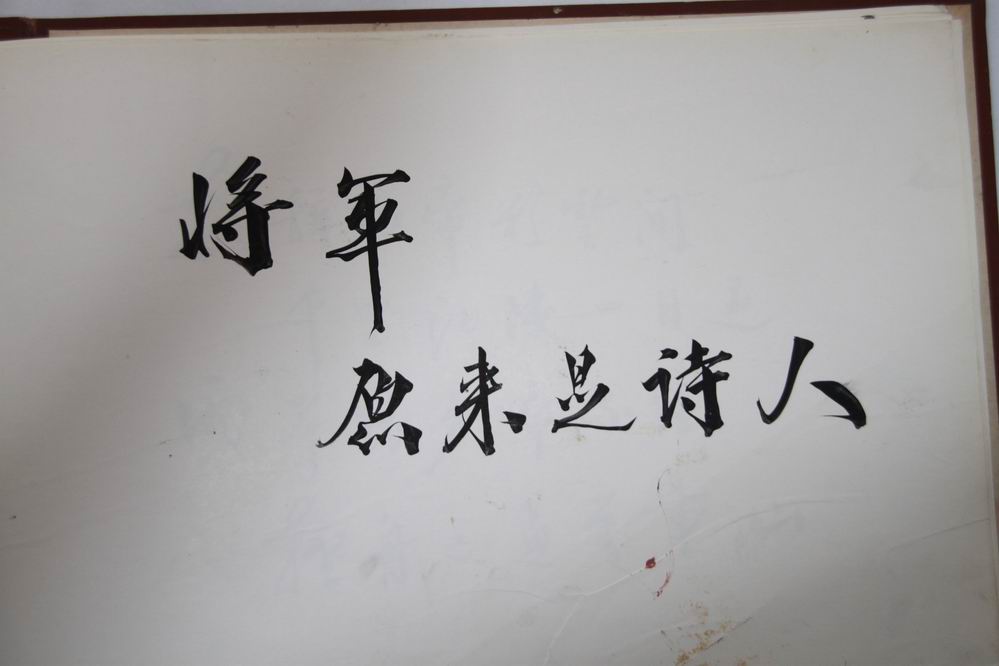 将军
原来是诗人